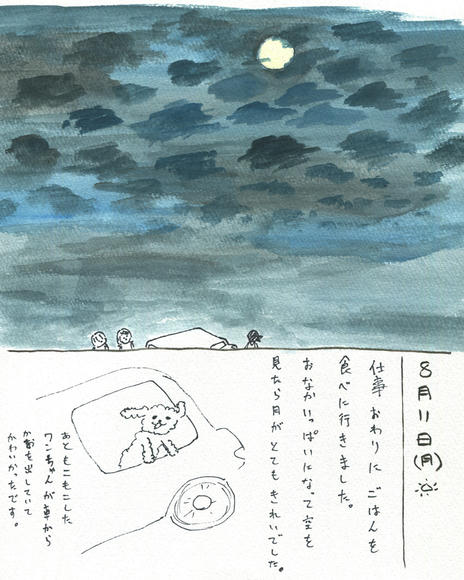 8月11日(月)
仕事おわりにごはんを
食べに行きました。
おなかいっぱいになって空を
見たら月がとてもきれいでした。
あともこもこした
ワンちゃんが車から
かおを出していて
かわいかったです。